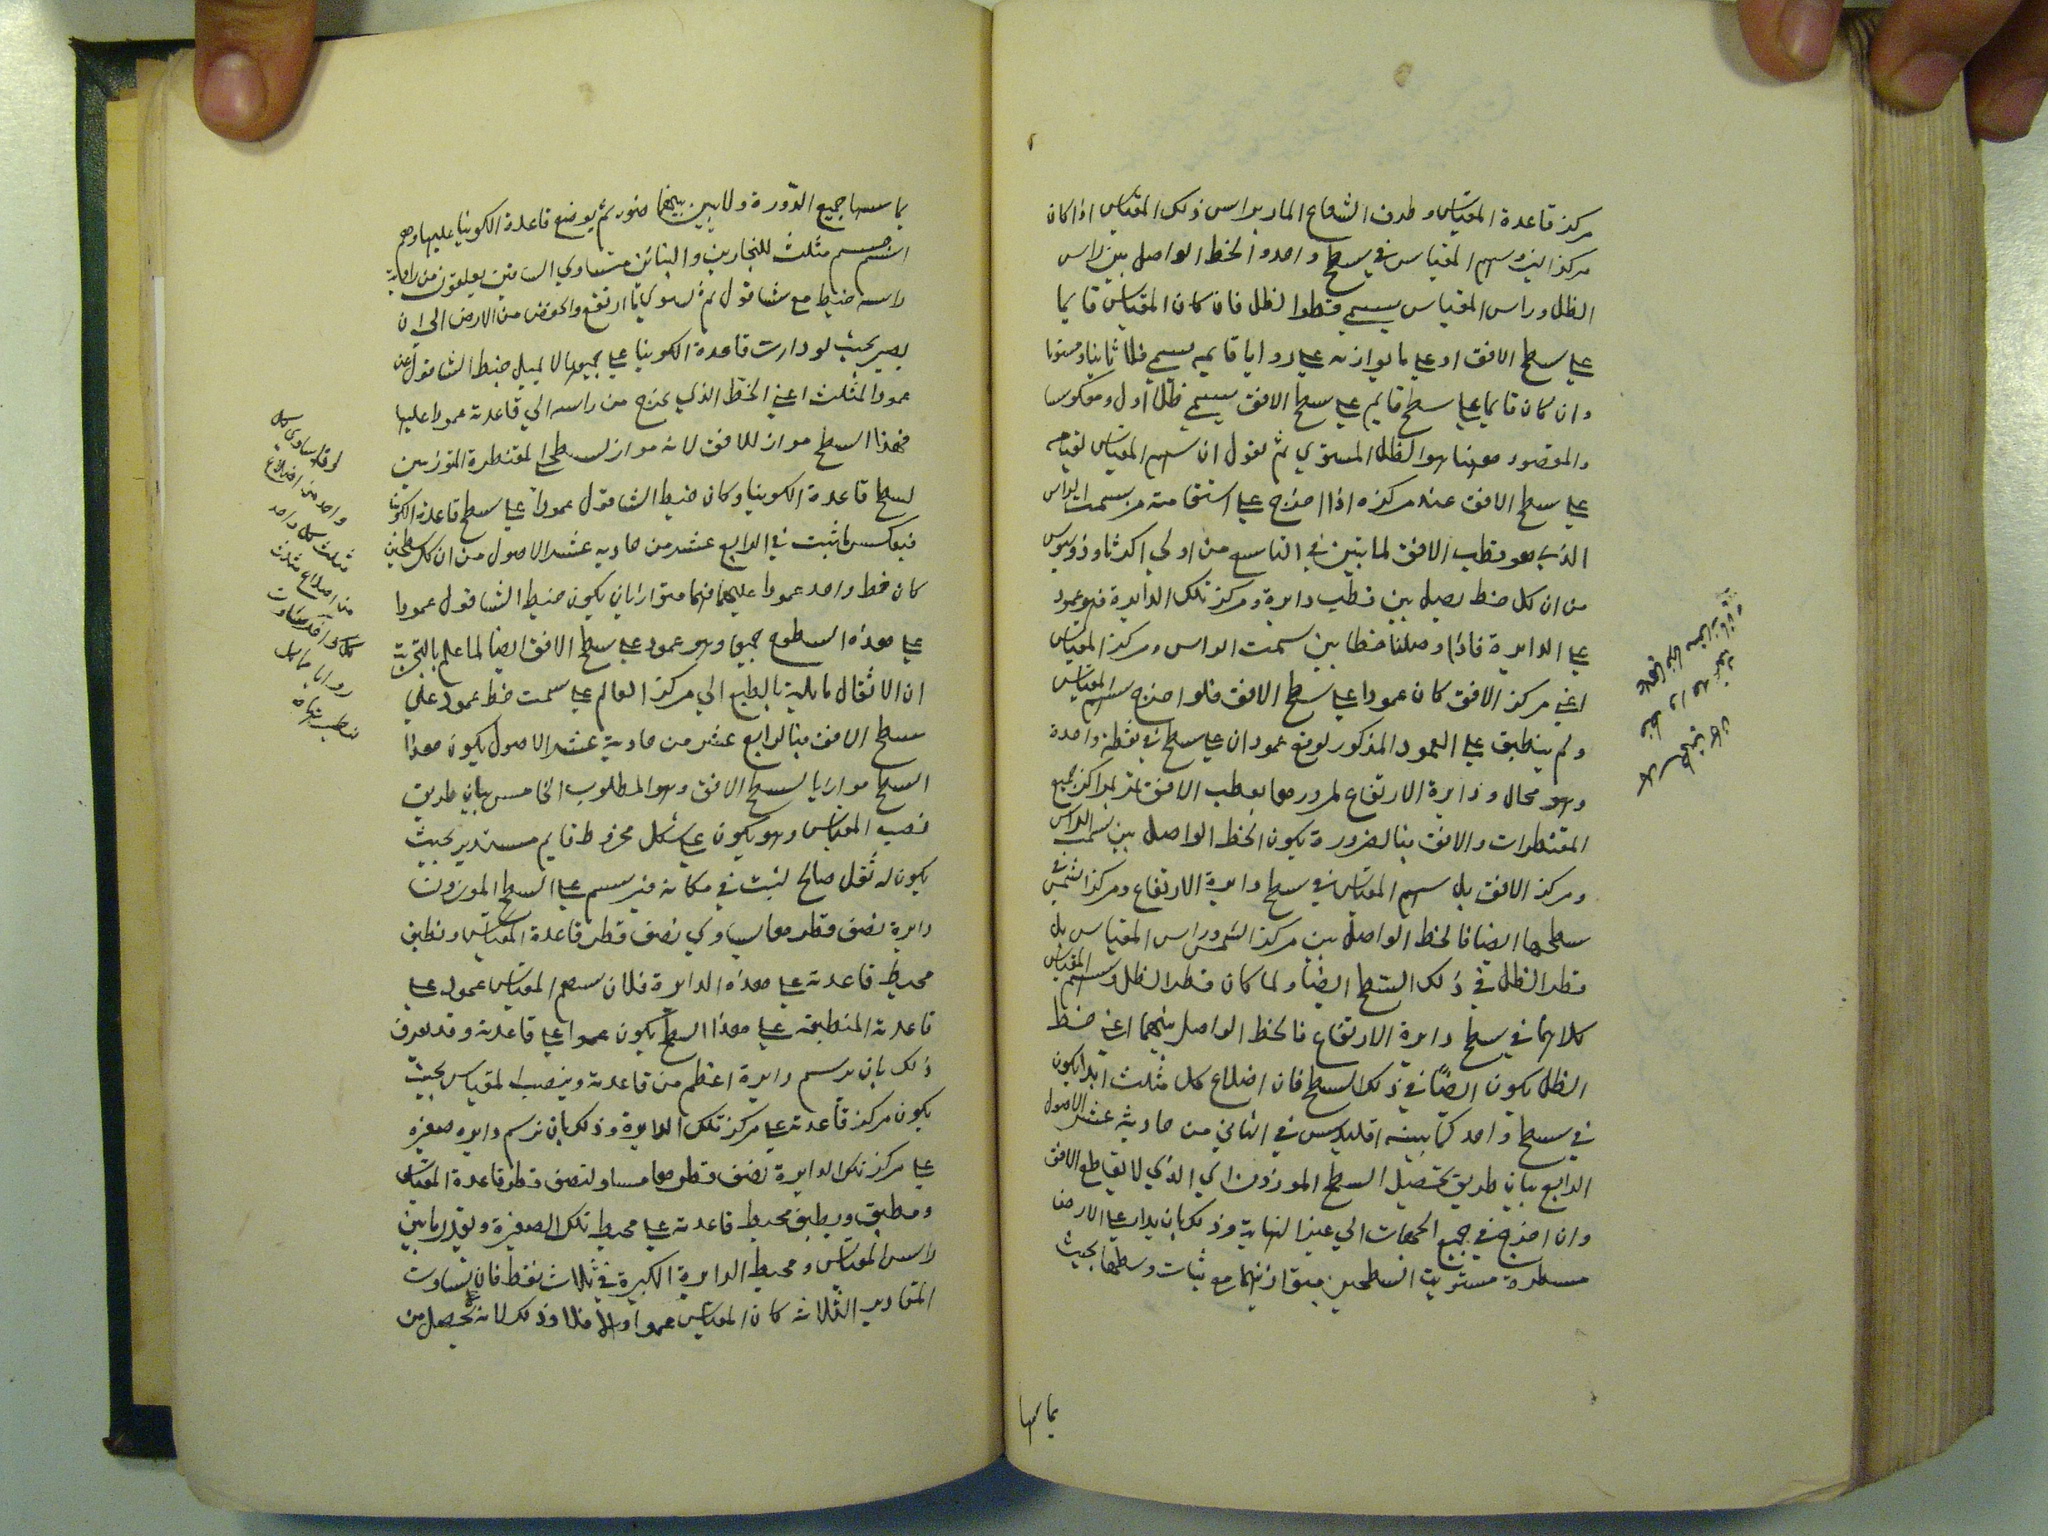 مركز قاعدة المقياس وطرف الشعاع المار براس ذلك المقياس اذا كان
مركز النير وسهم المقياس في سطح واحد والخط الواصل بين راس
الظل وراس المقياس يسمي قطر الظل فان كان المقياس قايما
علي سطح الافق او علي ما يوازيه علي زوايا قايمه يسمي ظلا ثانيا ومستويا
وان كان قايما علي سطح قايم علي سطح الافق يسمي ظلا اول ومعكوسا
والمقصود ههنا هو الظل المستوي ثم نقول ان سهم المقياس لقيامه
علي سطح الافق عند مركزه اذا اخرج علي استقامته مر بسمت الراس
الذي هو قطب الافق لما تبين في التاسع من اولي اكر ثاوذوسيوس
من ان كل خط يصل بين قطب دايرة ومركز تلك الدايرة فهو عمود
علي الدايرة فاذا وصلنا خطا بين سمت الراس ومركز المقياس
اعني مركز الافق كان عمودا علي سطح الافق فلو اخرج سهم المقياس
ولم ينطبق علي العمود المذكور لوقع عمودان علي سطح في نقطة واحدة
وهو محال ودايرة الارتفاع لمرورها بقطب الافق تمر بمراكز جميع
المقنطرات والافق فبالضرورة يكون الخط الواصل بين سمت الراس
ومركز الافق بل سهم المقياس في سطح دايرة الارتفاع ومركز الشمس في
سطحها ايضا فالخط الواصل بين مركز الشمس وراس المقياس بل
قطر الظل في ذلك السطح ايضا ولما كان قطر الظل وسهم المقياس
كلاهما في سطح دايرة الارتفاع فالخط الواصل بينهما اعني خط
الظل يكون ايضا في ذلك السطح فان اضلاع كل مثلث ابدا يكون
في سطح واحد كما بينه اقليدس في الثاني من حادية عشر الاصول
الرابع بيان طريق تحصيل السطح الموزون اي الذي لا يقاطع الافق
وان اخرج في جميع الجهات الي غير النهاية وذلك بان يدار علي الارض
مسطرة مستوية السطحين متوازيهما مع ثبات وسطها بحيث
يماسها
يماسها جميع الدورة ولا يبين بينهما ضوء ثم يوضع قاعدة الكونيا عليها وهو
اسم جسم مثلث للنجارين والبنائن متساوي الساقين يعلقون من زاوية
راسه خيط مع شاقول ثم يسوي ما ارتفع وانخفض من الارض الي ان
يصير بحيث لو دارت قاعدة الكونيا علي جميعها لا يميل خيط الشاقول عن
عمود المثلث اعني الخط الذي يخرج من راسه الي قاعدته عمودا عليها
فهذا السطح مواز للافق لانه مواز لسطحي المقنطرة الموازيين
لسطح قاعدة الكونيا وكان خيط الشاقول عمودا علي سطح قاعدة الكونيا
فبعكس ما ثبت في الرابع عشر من حاديه عشر الاصول من ان كل سطحين
كان خط واحد عمودا عليهما فهما متوازيان يكون خيط الشاقول عمودا
علي هذه السطوح جميعا وهو عمود علي سطح الافق ايضا لما علم بالتجربة
ان الاثقال مايلة بالطبع الي مركز العالم علي سمت خط عمود علي
سطح الافق فبالرابع عشر من حادية عشر الاصول يكون هذا
السطح موازيا لسطح الافق وهو المطلوب الخامس بيان طريق
نصب المقياس وهو يكون علي شكل مخروط قايم مستدير بحيث
يكون له ثقل صالح ليثبت في مكانه فيرسم علي السطح الموزون
دايرة نصف قطرها يساوي نصف قطر قاعدة المقياس ونطبق
محيط قاعدته علي هذه الدايرة فلان سهم المقياس عمود علي
قاعدته المنطبقه علي هذا السطح يكون عمودا علي قاعدته وقد يعرف
ذلك بان يرسم دايرة اعظم من قاعدته وينصب المقياس بحيث
يكون مركز قاعدته علي مركز تلك الدايرة وذلك بان نرسم دايره صغيره
علي مركز تلك الدايرة نصف قطرها مساو لنصف قطر قاعدة المقياس
ويطبق محيط قاعدته علي محيط تلك الصغيرة ويقدر ما بين
راس المقياس ومحيط الدايرة الكبيرة في ثلاث نقط فان تساوت
المقادير الثلاثه كان المقياس عمودا والا فلا وذلك لانه يحصل من
واحد من اضلاع
مثلث كل واحد
من اضلاع مثلث